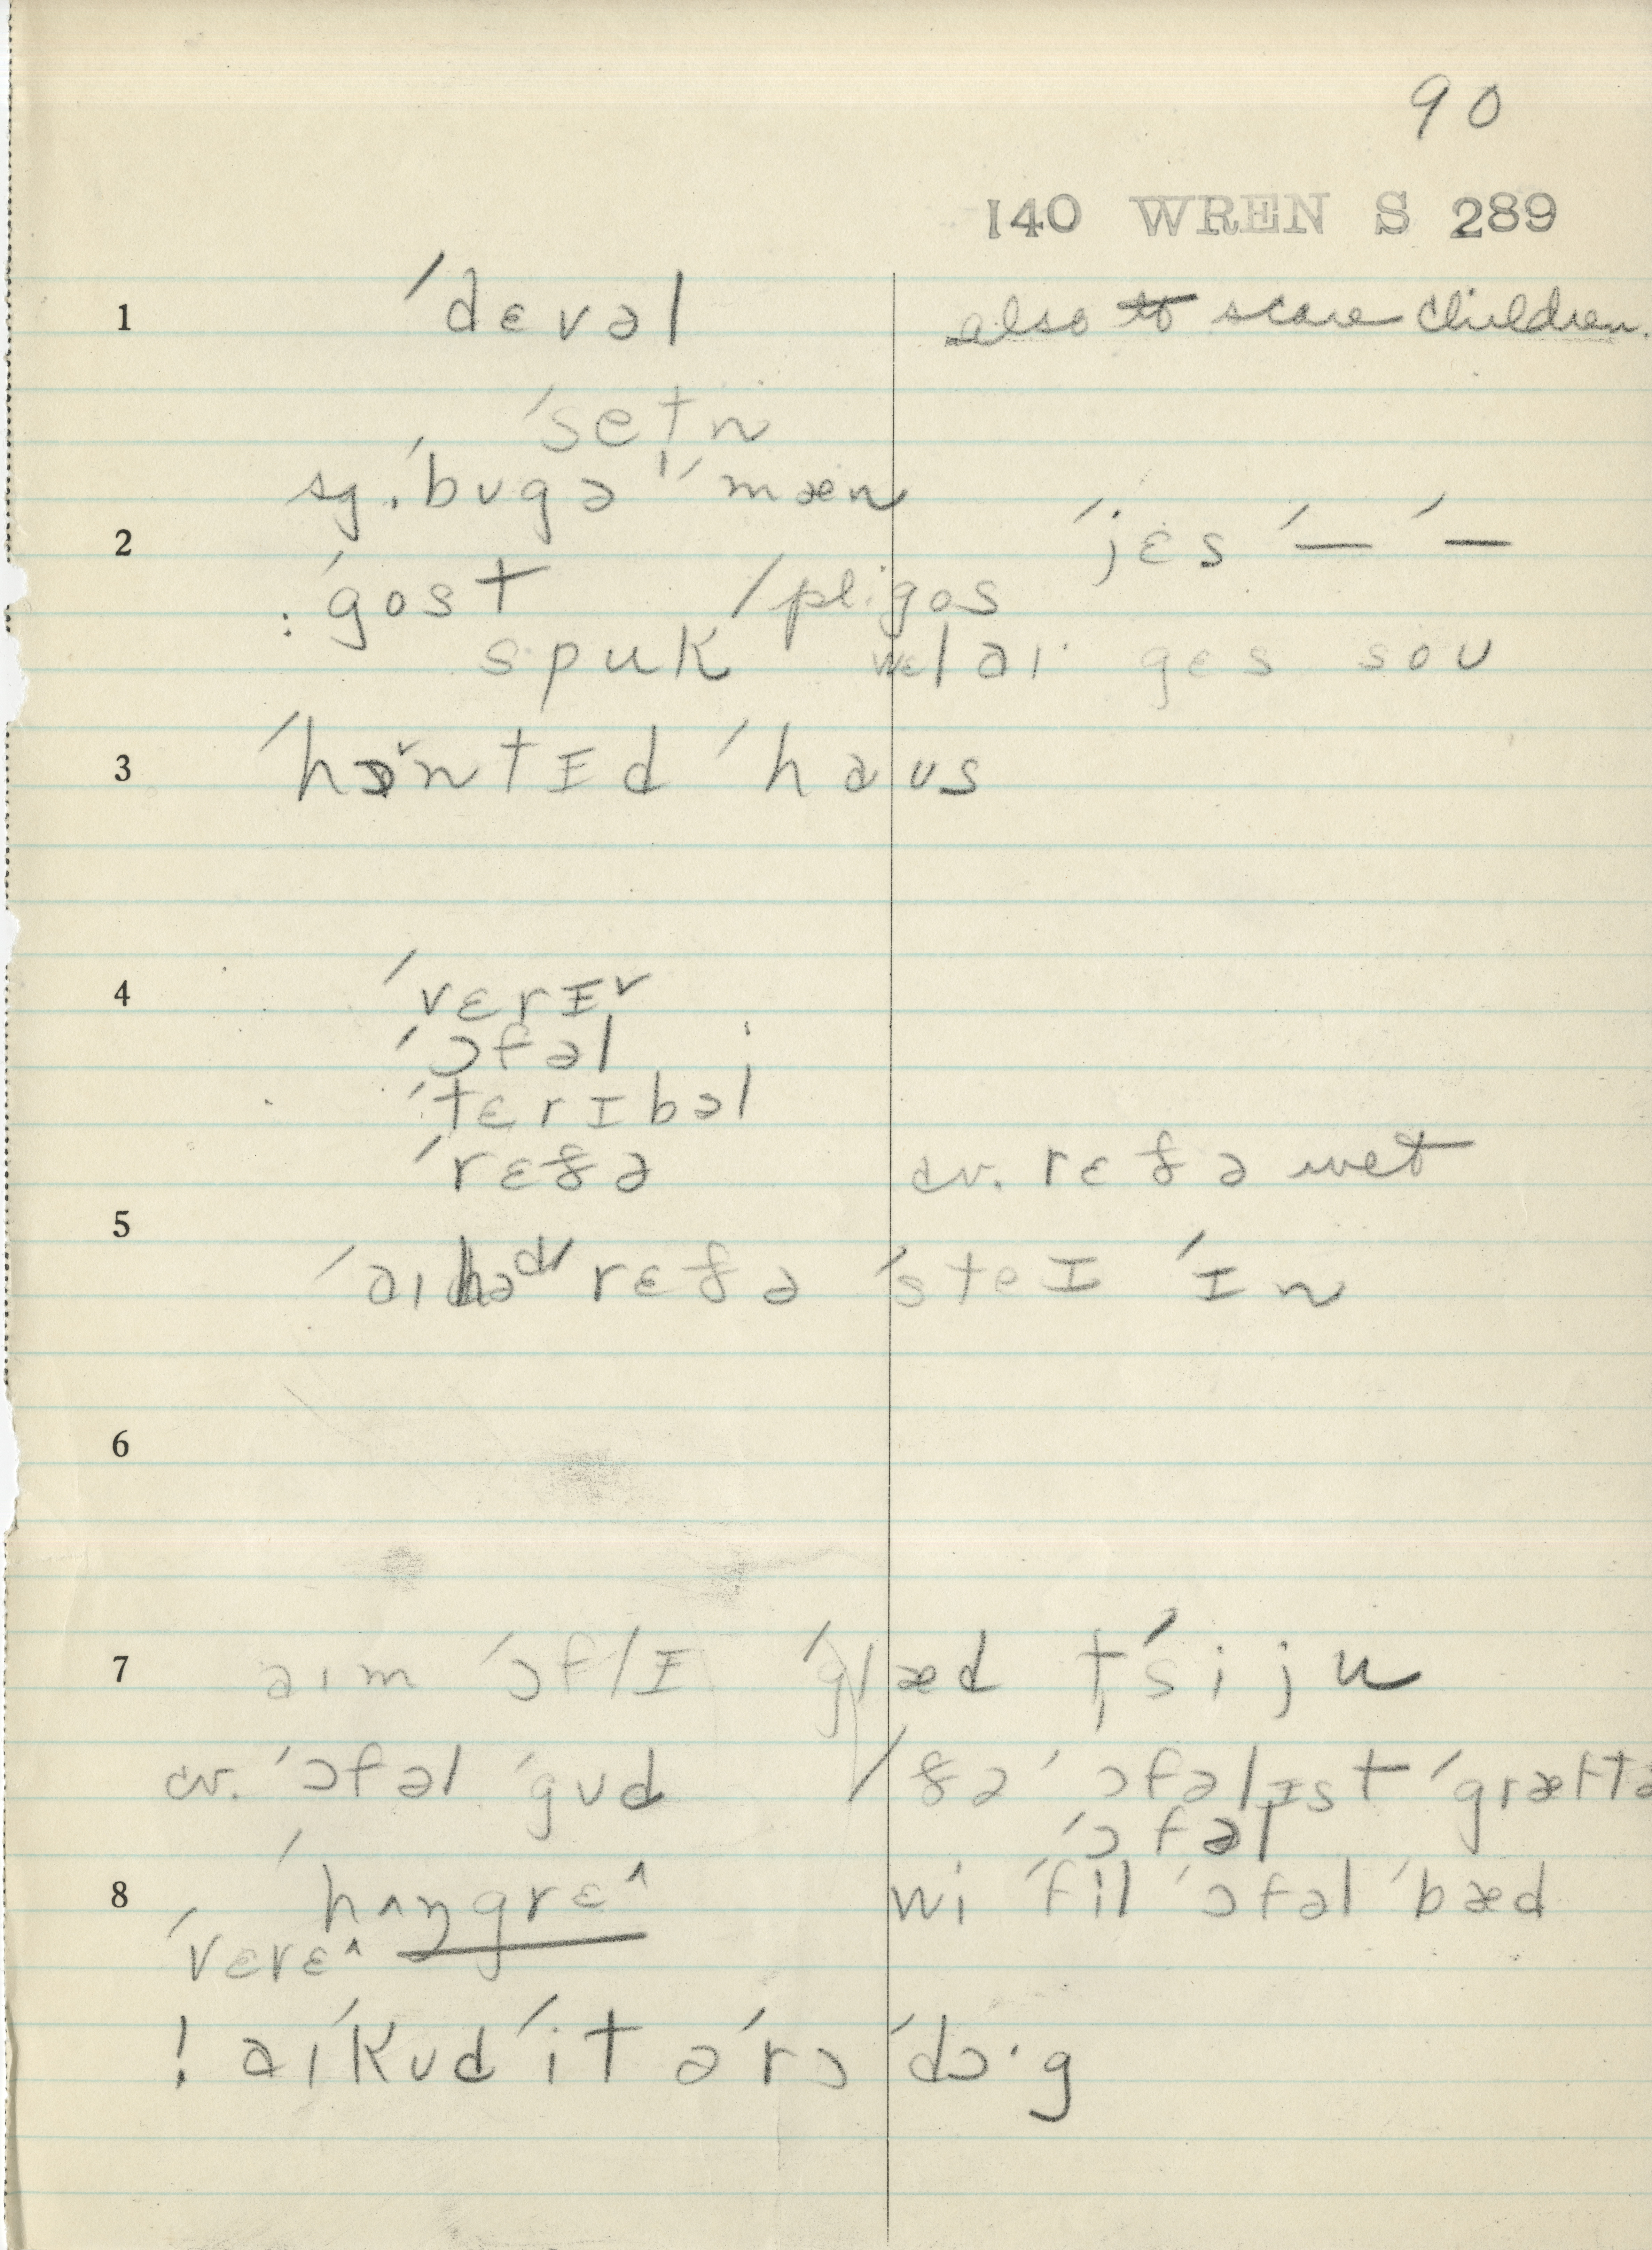 90
140 WREN S 289
1 ˈdɛvəl also to scare children.
ˈsetn
sg. ˈbugə ˈmæn
2 ˈjɛs ˈ— ˈ—
: ˈgost / pligos
spuk wɛl aɪ gɛs soʊ
3 ˈhɔ˅ntɪd ˈhaʊs
4 ˈvɛrɪ˅
ˈɔfəl
ˈtɛrɪbəl
ˈrɛðə cv. rɛðə wet
5
ˈaɪ hədˈ rɛðə ˈsteɪ ˈɪn
6
7 aɪm ˈɔflɪ ˈglæd tˈsi ju
cv. ˈɔfəl ˈgʊd / ðə ˈɔfəlɪst
ˈɔfəl
8 ˈhʌŋgrɛ^ wi ˈfil ˈɔfəl ˈbæd
ˈvɛrɛ^
! aɪ ˈkʊd ˈit ə ˈrɔ ˈdɔ·g